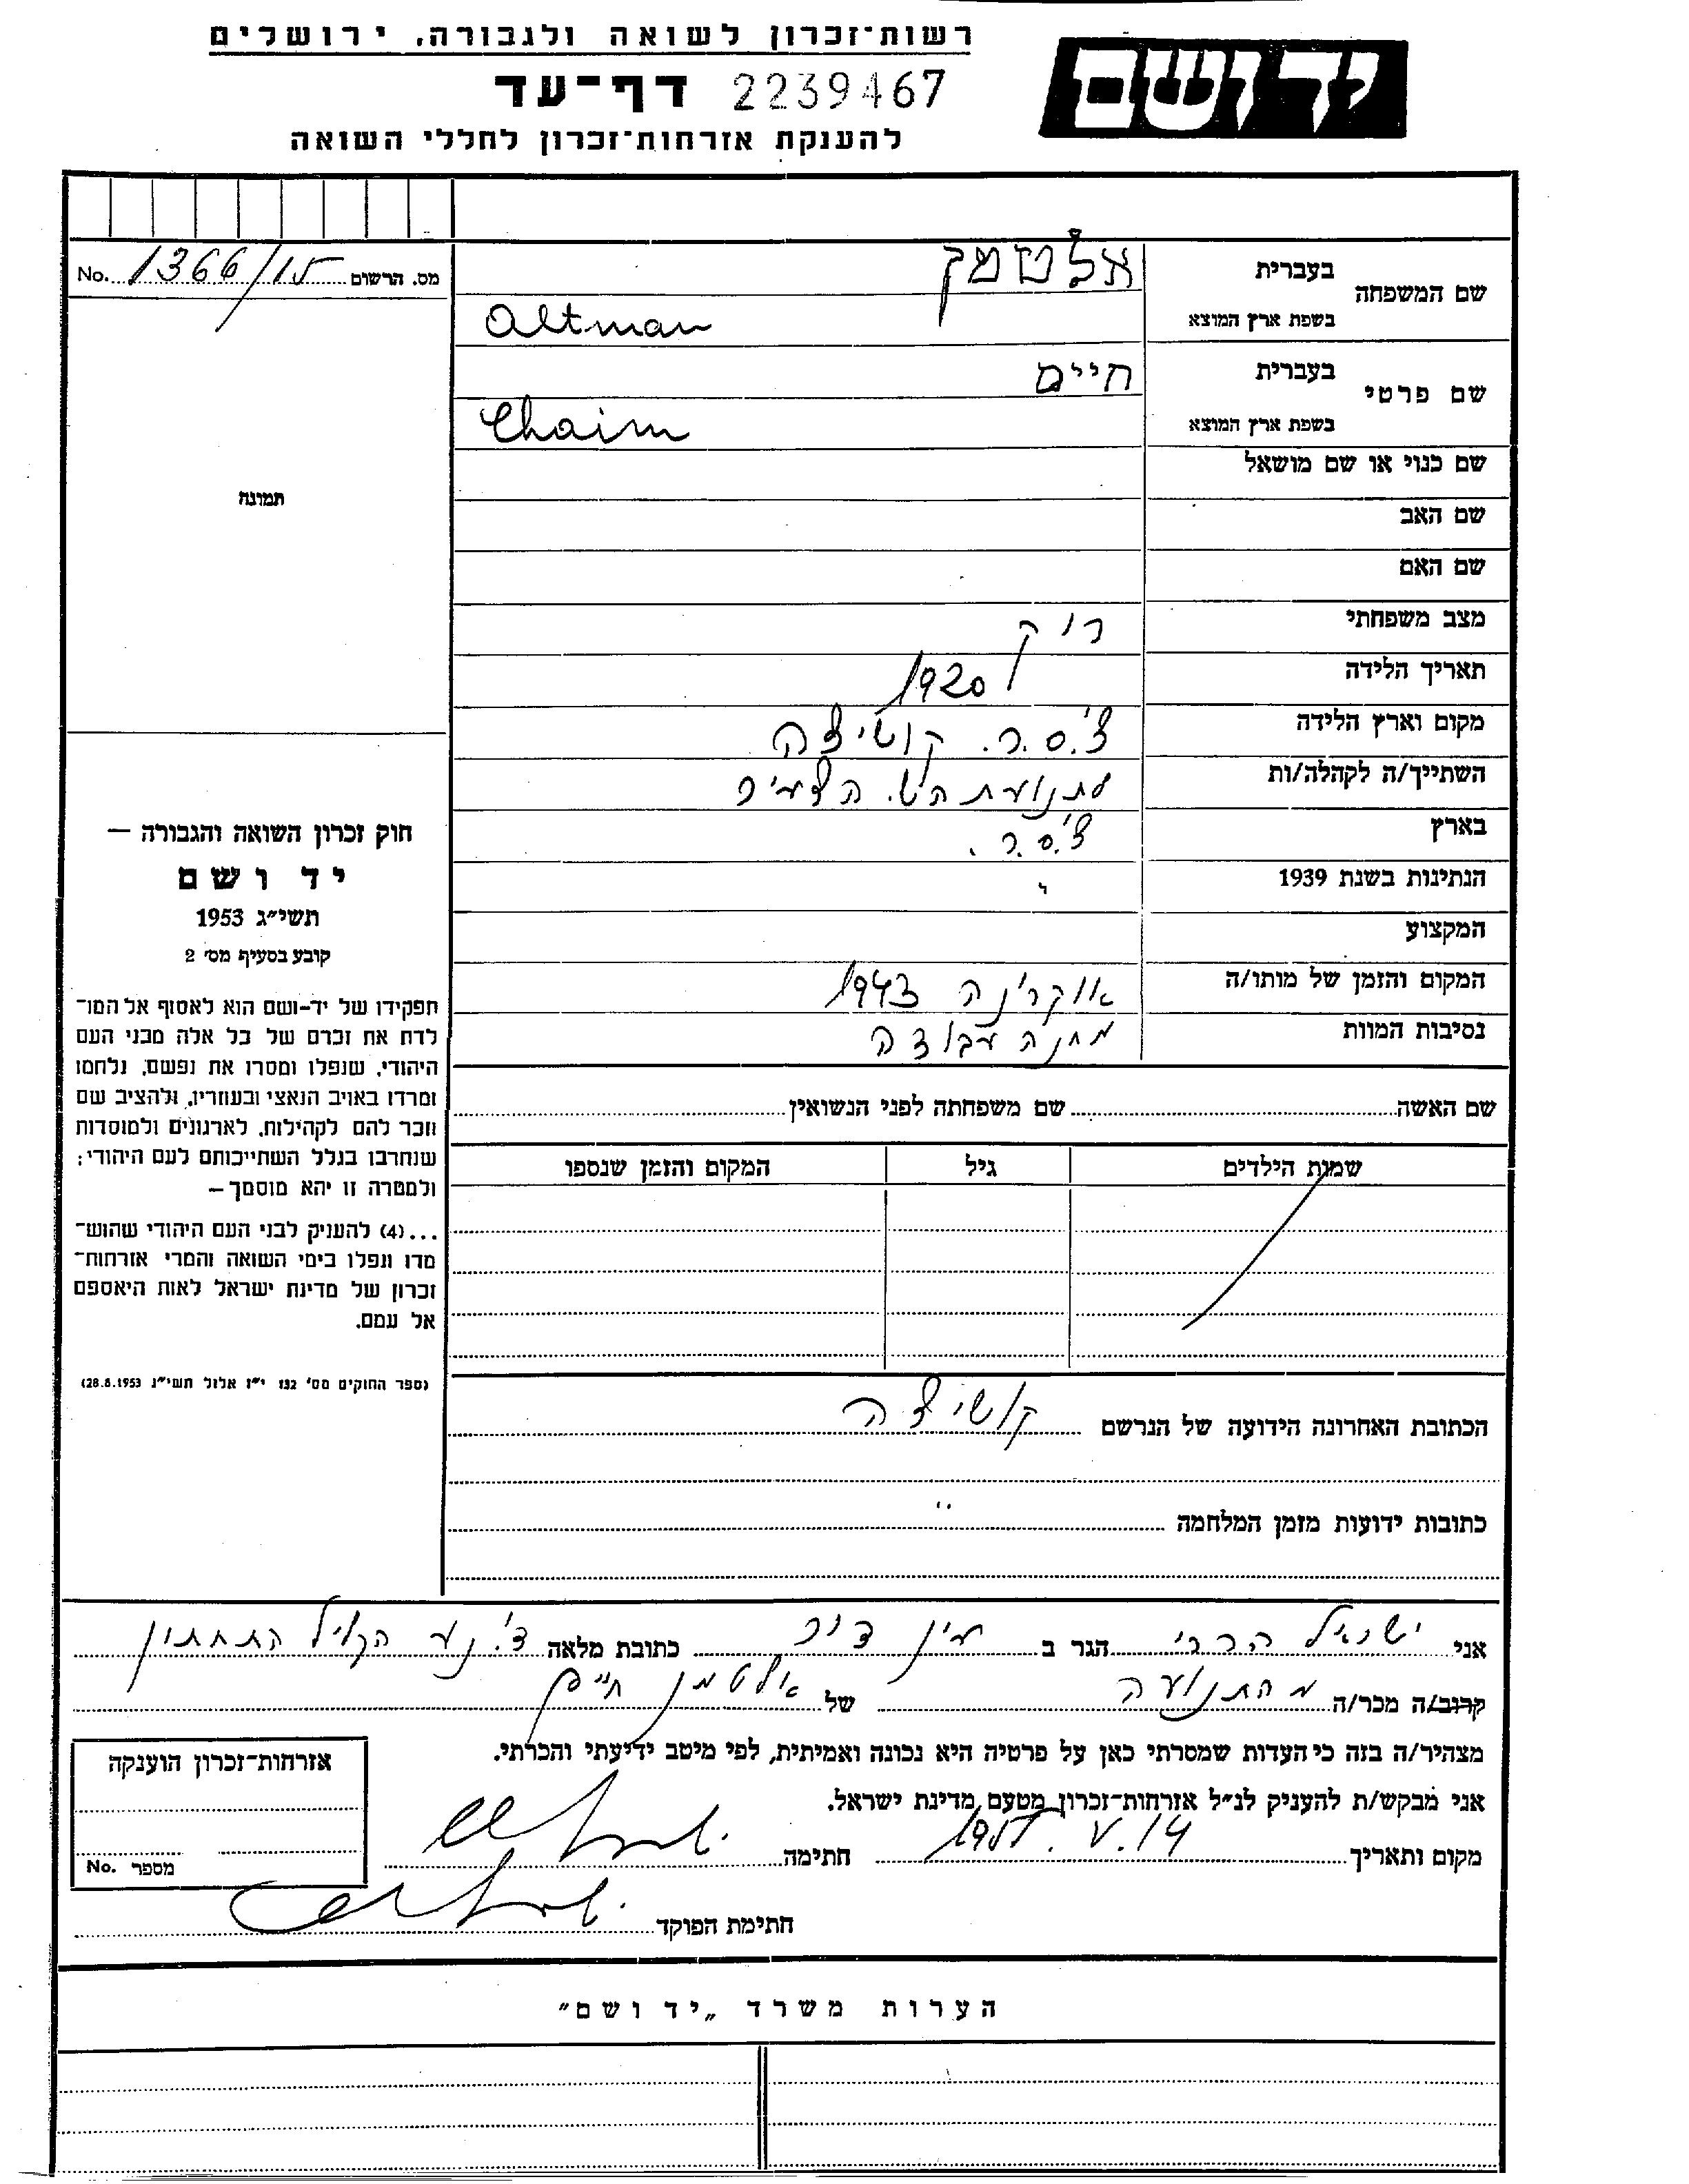 רשות־זכרון לשואה ולגבורה, ירושלים
יד ושם
דף־עד 2239467
להענקת אזרחות־זכרון לחללי השואה
מס. הרשום 1366/15 No.
שם המשפחה בעברית אלטמן
בשפת ארץ המוצא Altman
שם פרטי בעברית חיים
בשפת ארץ המוצא Chaim
שם כנוי או שם מושאל
שם האב
שם האם
מצב משפחתי רוק
תאריך הלידה 1920
מקום וארץ הלידה צ'.ס.ר. קושיצה
השתייך/ה לקהלה/ות לתנועת הש. הצעיר
בארץ צ'.ס.ר.
הנתינות בשנת 1939 "
המקצוע
המקום והזמן של מותו/ה אוקרינה 1943
נסיבות המוות מחנה עבודה
תמונה
חוק זכרון השואה והגבורה —
יד ושם
תשי״ג 1953
קובע בסעיף מס׳ 2
תפקידו של יד־ושם הוא לאסוף אל המו־
לדת את זכרם של כל אלה מבני העם
היהודי, שנפלו ומסרו את נפשם, נלחמו
ומרדו באויב הנאצי ובעוזריו, ולהציב שם
וזכר להם לקהילות, לארגונים ולמוסדות
שנחרבו בגלל השתייכותם לעם היהודי;
ולמטרה זו יהא מוסמך—
...(4) להעניק לבני העם היהודי שהוש־
מדו ונפלו בימי השואה והמרי אזרחות־
זכרון של מדינת ישראל לאות היאספם
אל עמם.
(ספר החוקים מס׳ 132 י״ז אלול תשי״ג 28.8.1953)
שם האשה שם משפחתה לפני הנשואין
שמות הילדים גיל המקום והזמן שנספו
הכתובת האחרונה הידועה של הנרשם קושיצה
כתובות ידועות מזמן המלחמה "
אני ישראל הררי הגר ב עין דור כתובת מלאה ד.נע הגליל התחתון
קרוב/ה מכר/ה מהתנועה של אלטמן חיים
מצהיר/ה בזה כי העדות שמסרתי כאן על פרטיה היא נכונה ואמיתית, לפי מיטב ידיעתי והכרתי.
אני מבקש/ת להעניק לנ״ל אזרחות־זכרון מטעם מדינת ישראל.
מקום ותאריך 14.V. חתימה
חתימת הפוקד
אזרחות־זכרון הוענקה
מספר No.
הערות משרד „יד ושם״